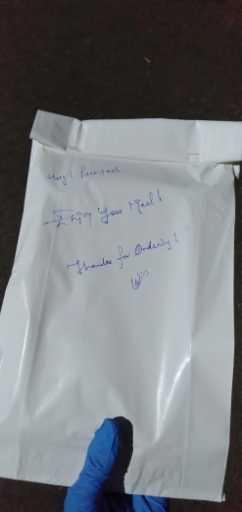 Hey!
Enjoy Your Meal!
Thanks for Ordering!